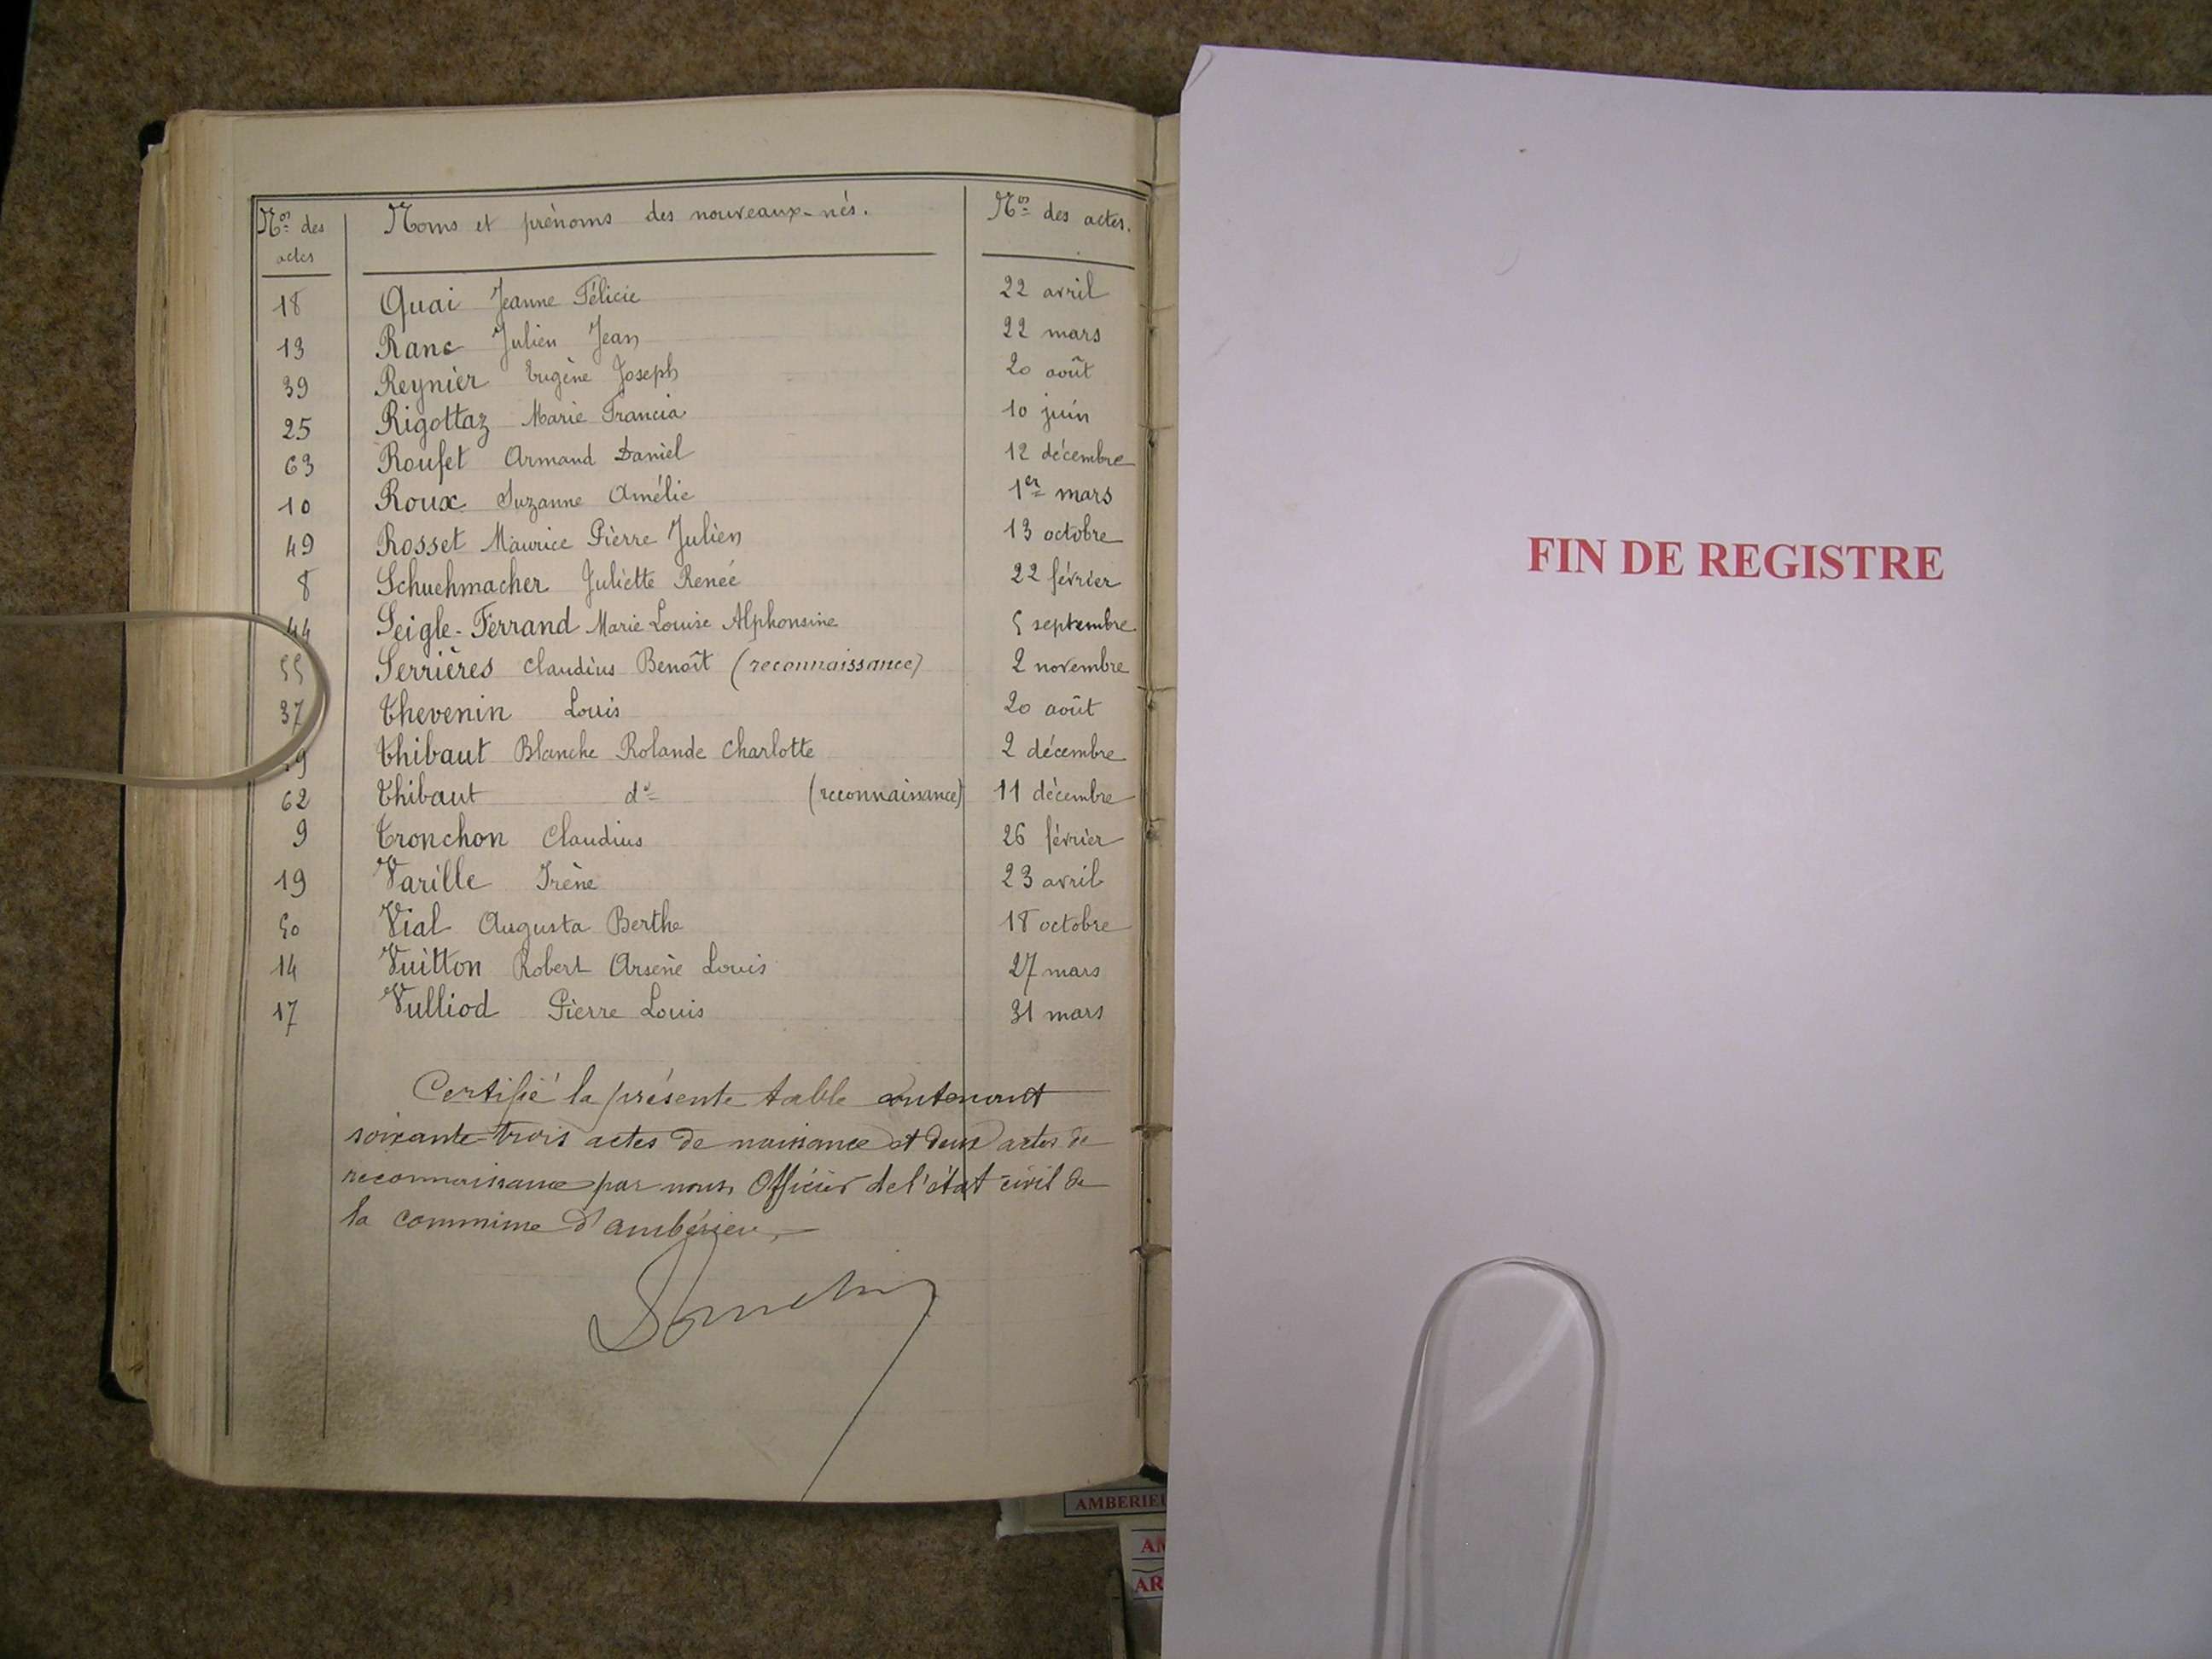 Nos des actes | Noms et prénoms des nouveaux-nés. | Nos des actes.
18 Quai Jeanne Félicie 22 avril
13 Ranc Julien Jean 22 mars
39 Reynier Eugène Joseph 20 août
25 Rigottaz Marie Francia 10 juin
63 Roufet Armand Daniel 12 décembre
10 Roux Suzanne Amélie 1er mars
49 Rosset Maurice Pierre Julien 13 octobre
8 Schuehmacher Juliette Renée 22 février
44 Seigle-Ferrand Marie Louise Alphonsine 5 septembre
55 Serrières Claudius Benoît (reconnaissance) 2 novembre
37 Thevenin Louis 20 août
Thibaut Blanche Rolande Charlotte 2 décembre
62 Thibaut do (reconnaissance) 11 décembre
9 Tronchon Claudius 26 février
19 Varille Irène 23 avril
50 Vial Augusta Berthe 18 octobre
14 Vuitton Robert Arsène Louis 27 mars
17 Vulliod Pierre Louis 31 mars
Certifié la présente table contenant
soixante-trois actes de naissance et deux actes de
reconnaissance par nous, Officier de l'état civil de
la commune d'ambérieu,
FIN DE REGISTRE
AMBERIEU
AM
AR